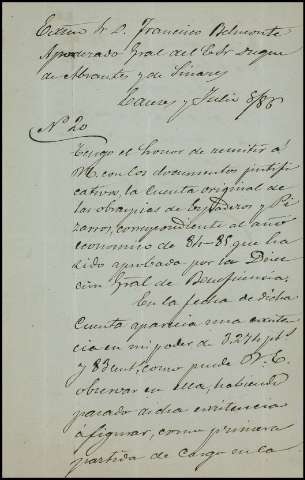 Excmo Sr D. Francisco Belmonte
Apoderado Gral del Edr Duque
de Abrantes y de Linares
Cauces y Julio 8/86
Nº 20
Tengo el honor de remitir á
V. con los documentos justifi
cativos, la cuenta original de
las obras pias de y Pi
zarros, correspondiente al año
economico de 84-85 que ha
sido aprobada por la Direc
cion Gral de Beneficencia.
En la fecha de dicha
cuenta aparecia una existen
cia en mi poder de 3274 pts
y 83 cent, como puede V. E.
observar en ella, habiendo
pasado dicha existencia
á figurar, como primera
partida de cargo en la